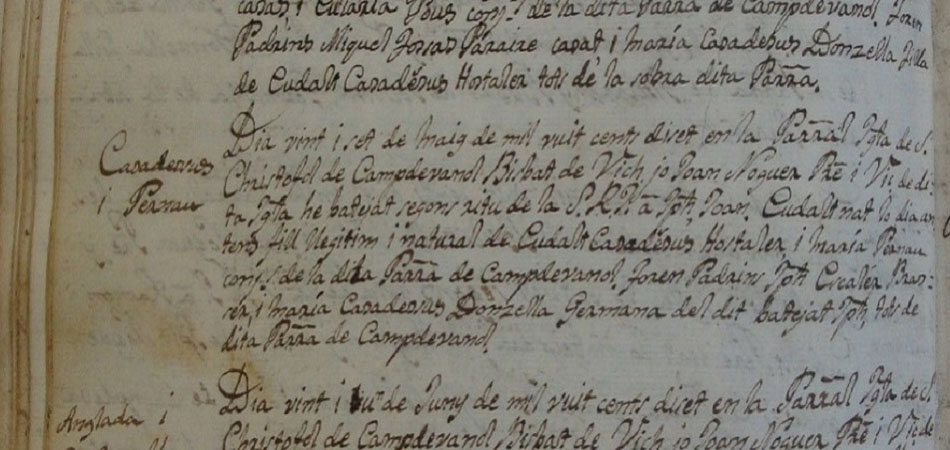 casats i Eularia Pous conj.s de la dita Parra de Campdevanol. Foren
Padrins Miquel Jossas Paraire casat i María Casadesus Donzella filla
de Eudalt Casadesus Hostaler tots de la sobra dita Parra.
Casadessus
i Pernau
Dia vint i set de Maig de mil vuit cents diset en la Parral Igla de S.
Christofol de Campdevanol Bisbat de Vich, jo Joan Noguer Pre i Vi.ri de di-
ta Igla he batejat segons ritu de la S. R. Iph, Joan, Eudalt nat lo dia an-
tens, fill llegitim i natural de Eudalt Casadesus Hostaler i María Pernau
conj.s de la dita Parra de Campdevanol. Foren Padrins Iph Bras-
ser, i María Casadessus Donzella Germana del dit batejat Iph, tots de
dita Parra de Campdevanol.
Anglada i
Dia vint i de Juny de mil vuit cents diset en la Parral Igla de S.
Christofol de Campdevanol Bisbat de Vich jo Joan Noguer Pre i Vi. de